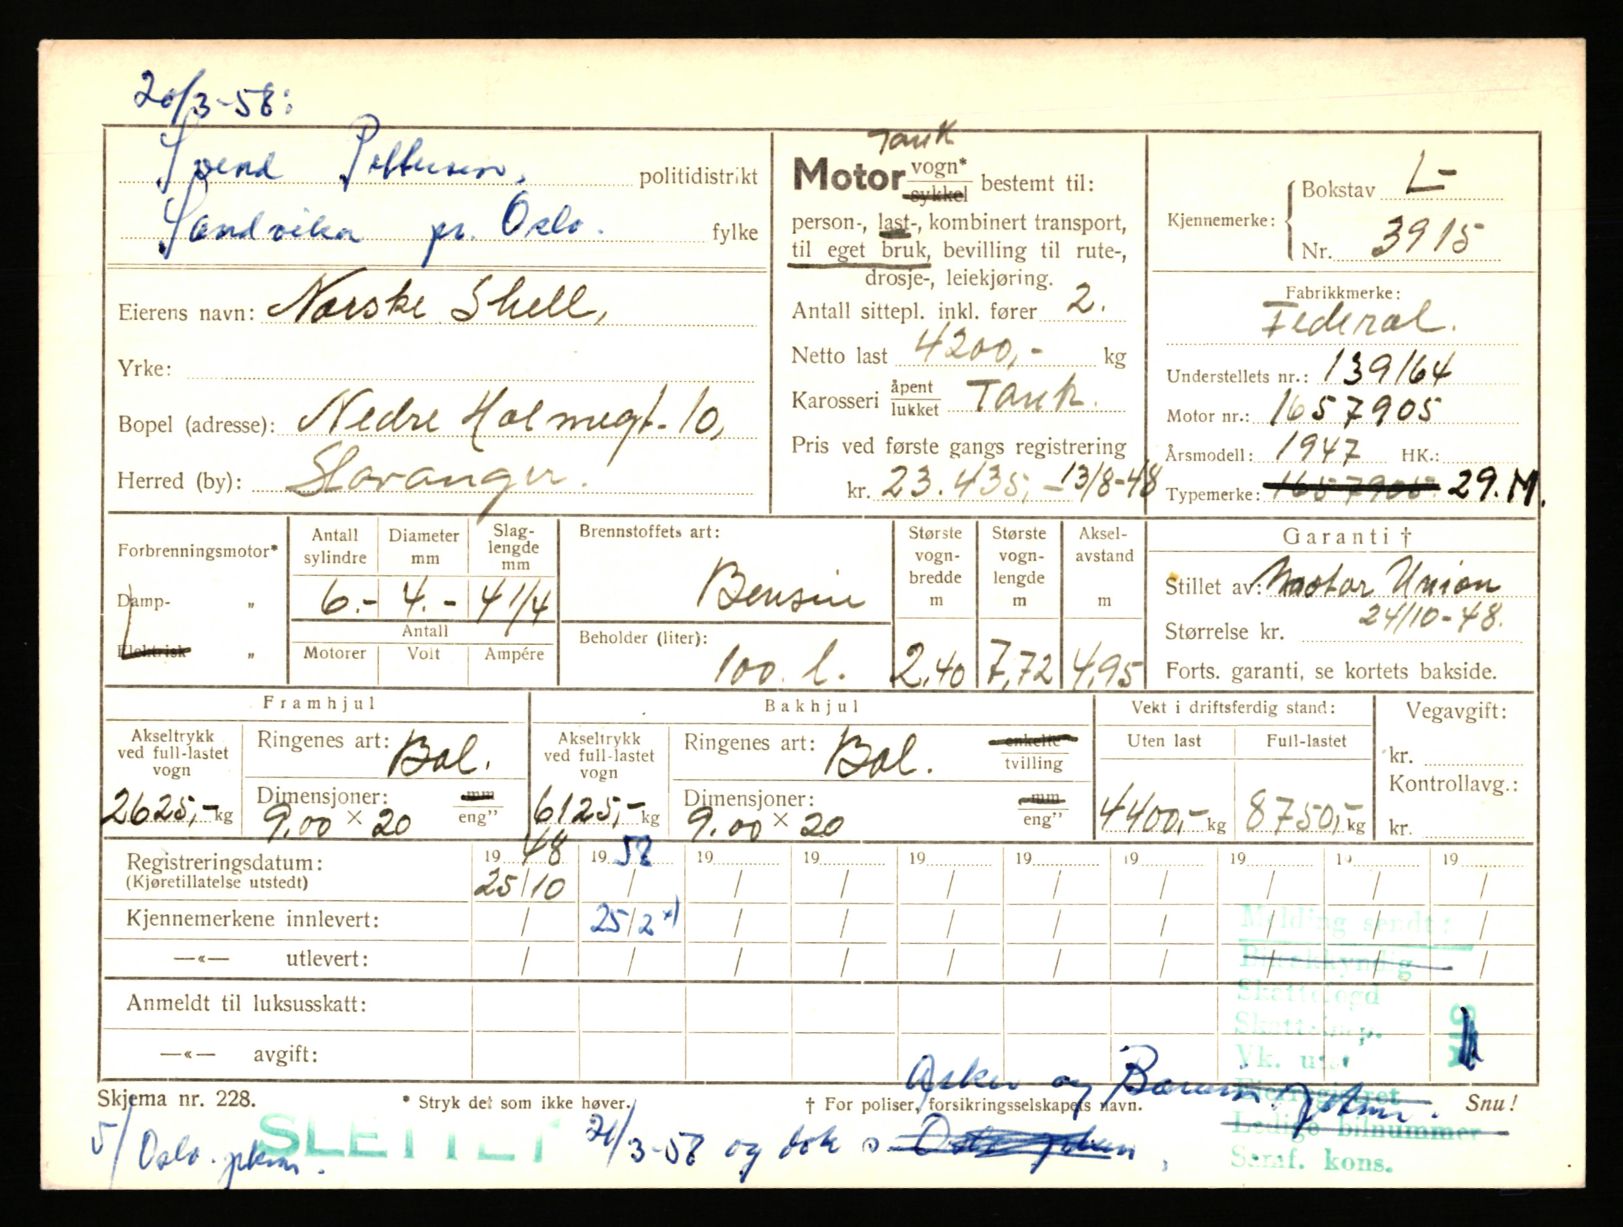 20/3-58:
Svend Pettersen, politidistrikt
Sandvika pr. Oslo. fylke
Eierens navn: Norske Shell,
Yrke:
Bopel (adresse): Nedre Holmegt. 10,
Herred (by): Stavanger.
Tank
Motor vogn* sykkel bestemt til:
person-, last-, kombinert transport,
til eget bruk, bevilling til rute-,
drosje-, leiekjøring.
Antall sittepl. inkl. fører 2.
Netto last 4200,- kg
Karosseri åpent lukket Tank.
Pris ved første gangs registrering
kr. 23.435,- 13/8-48
Kjennemerke: Bokstav L-
Nr. 3915
Fabrikkmerke:
Federal.
Understellets nr.: 139164
Motor nr.: 1657905
Årsmodell: 1947 HK.:
Typemerke: 1657905. 29.M.
Forbrenningsmotor*
Damp- "
Elektrisk "
Antall sylindre Diameter mm Slag-lengde mm
6.- 4.- 4 1/4
Antall
Motorer Volt Ampére
Brennstoffets art:
Bensin
Beholder (liter):
100 l.
Største vogn-bredde m Største vogn-lengde m Aksel-avstand m
2,40 7,72 4,95
Garanti †
Stillet av: Motor Union
24/10-48.
Størrelse kr.
Forts. garanti, se kortets bakside.
Framhjul
Akseltrykk ved full-lastet vogn
2625,- kg
Ringenes art: Bal.
Dimensjoner: mm eng"
9.00 × 20
Bakhjul
Akseltrykk ved full-lastet vogn
6125,- kg
Ringenes art: Bal. enkelte tvilling
Dimensjoner: mm eng"
9.00 × 20
Vekt i driftsferdig stand:
Uten last Full-lastet
4400,- kg 8750,- kg
Vegavgift:
kr.
Kontrollavg.:
kr.
Registreringsdatum: 1948 1958 19 19 19 19 19 19 19 19
(Kjøretillatelse utstedt) 25/10 / / / / / / / / /
Kjennemerkene innlevert: / 25/2 x) / / / / / / / /
—«— utlevert: / / / / / / / / / /
Anmeldt til luksusskatt:
—«— avgift:
Melding sendt:
Skattefogd
Vk. utst
Eierregisteret
Ledige bilnummer
Samf. kons.
Asker og Bærum
Skjema nr. 228. * Stryk det som ikke høver. † For poliser, forsikringsselskapets navn. Snu!
SLETTET
Oslo. pkm. 21/3-58 og dok